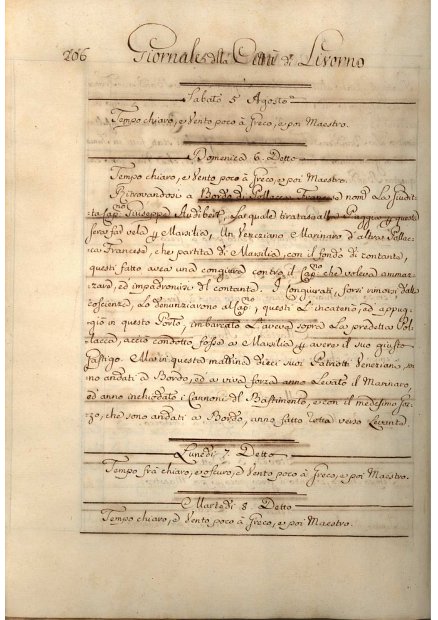 206 Giornale della Città di Livorno
Sabato 5 Agosto
Tempo chiaro, e Vento poco à Greco, e poi Maestro.
Domenica 6. Detto
Tempo chiaro, e Vento poco à Greco, e poi Maestro.
Ritrovandosi a Bordo di Pollacca Francese nom.ta La Giudit-
ta Cap.no Giuseppe Audibert, la quale tiratasi alla Piaggia questa
sera fa vela p Marsilia, Un Veneziano Marinaro d'altra Pollac-
ca Francese, che partita di Marsilia, con il fondo di contanti,
questi fatto aveva una congiura contro il Cap.no che voleva ammaz-
zare, ed impadronirsi del contante. I Congiurati, forsi rimorsi dalla
coscienza, Lo denunziavono al Cap.no, questi L'incatenò, ed appog-
giò in questo Porto, imbarcato L'aveva sopra La predetta Pol-
lacca, acciò condotto fosse a Marsilia p avere il suo giusto
Gastigo. Ma in questa mattina dieci suoi Patriotti Veneziani, so-
no andati a Bordo, ed a viva forza anno Levato il Marinaro,
ed anno inchiodato i Cannoni del Bastimento, e con il medesimo
che sono andati a Bordo, anno fatto verso Levante.
Lunedì 7. Detto
Tempo frà chiaro, e ofcuro, e Vento poco à Greco, e poi Maestro.
Martedì 8. Detto
Tempo chiaro, e Vento poco à Greco, e poi Maestro.